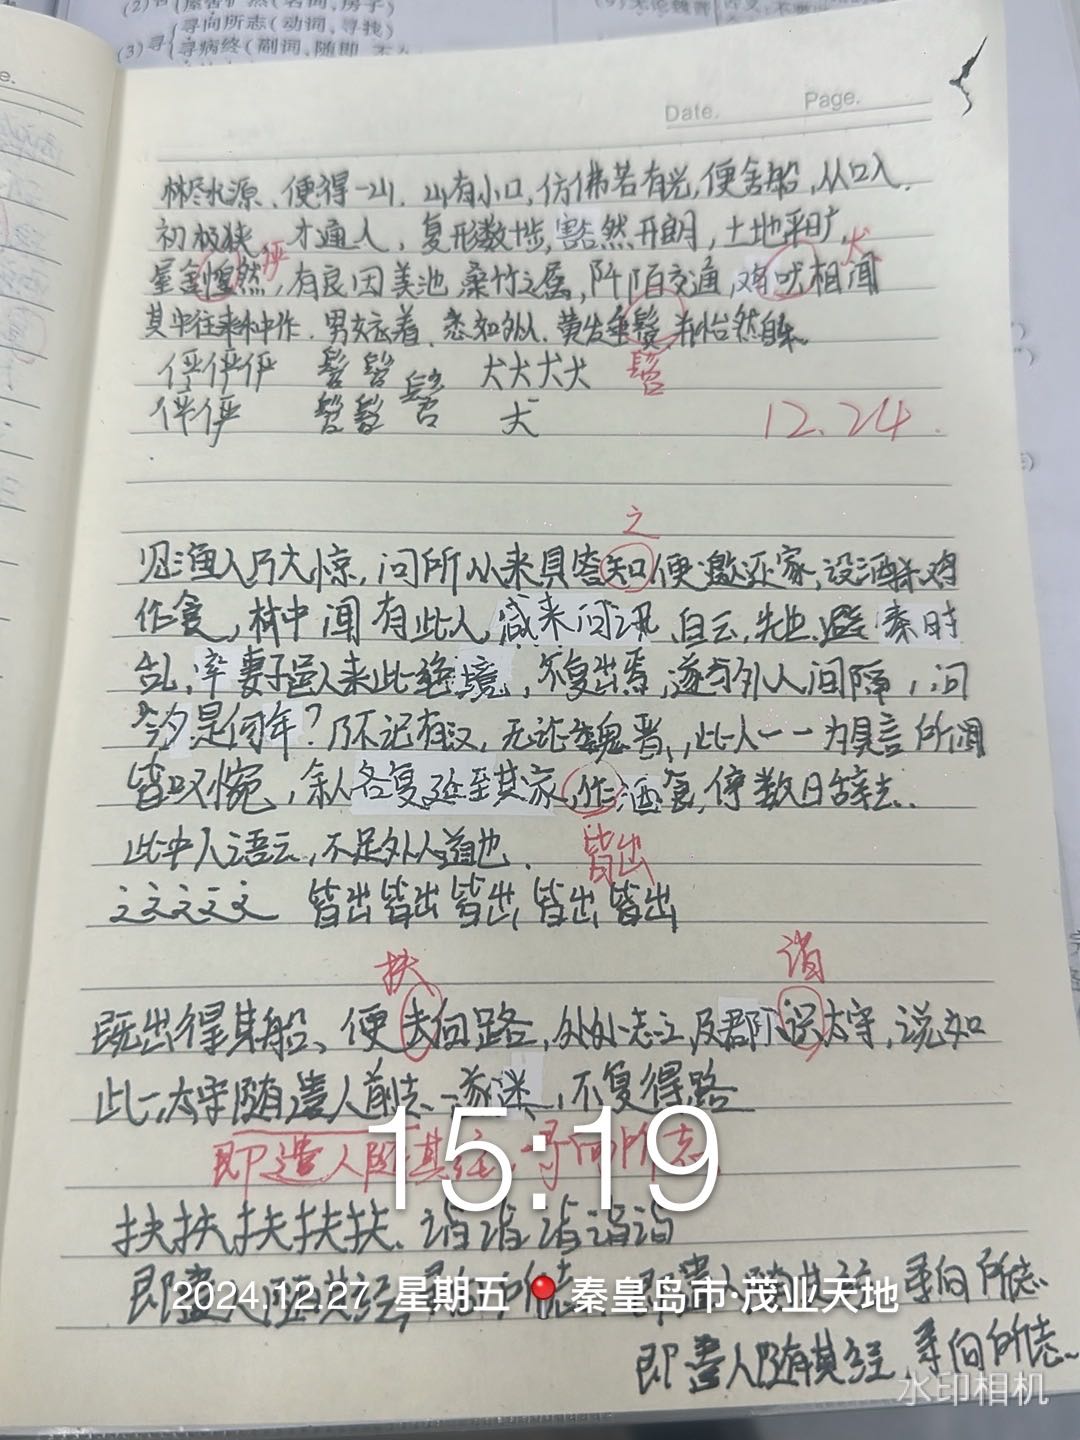 寻向所志(动词,寻找)
(3)寻 寻病终(副词,随即
Date. Page.
林尽水源、便得一山、山有小口,仿佛若有光,便舍船,从口入.
初极狭、才通人,复形数十步,豁然开朗,土地平旷,
俨 犬
屋舍惶然,有良田美池,桑竹之属,阡陌交通,鸡吠相闻
其中往来种作.男女衣着、悉如外人、黄发垂髫,并怡然自乐.
俨俨俨 髫髫髫 犬犬犬犬 髫
俨俨 髫髫髫 犬
12.24.
之
见渔人乃大惊,问所从来具皆知便邀还家,设酒杀鸡
作食,村中闻有此人,咸来问讯,自云,先世避秦时
乱,率妻子邑人来此绝境,不复出焉,遂与外人间隔,问
今夕是何年?乃不记有汉,无论魏晋,此人一一为具言所闻
皆叹惋,余人各复延至其家,作酒食,停数日辞去.
此中人语云,不足外人道也.
皆出
之之之之之 皆出皆出皆出,皆出,皆出
扶 诣
既出得其船、便去向路,处处志之,及郡下说太守,说如
此,太守随遣人前志,遂迷,不复得路
即遣人随其往,寻向所志,
扶扶扶扶扶、诣诣诣诣诣
寻向所志.
即遣人随其往,寻向所志、
15:19
2024.12.27 星期五 秦皇岛市·茂业天地
水印相机